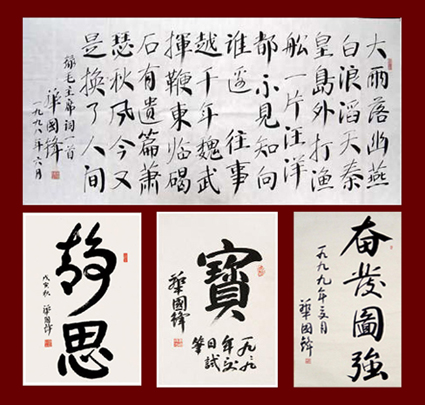 大雨落幽燕
白浪滔天秦
皇島外打漁
舩一片汪洋
都不見知向
誰邊 往事
越千年魏武
揮鞭東臨碣
石有遺篇蕭
瑟秋风今又
是換了人间
錄毛主席词一首
華國鋒
一九九八年六月
静思
戊寅秋 華國鋒
寶
一九九九
年元日試
筆
華國鋒
奮發圖強
一九九九年 月
華國鋒